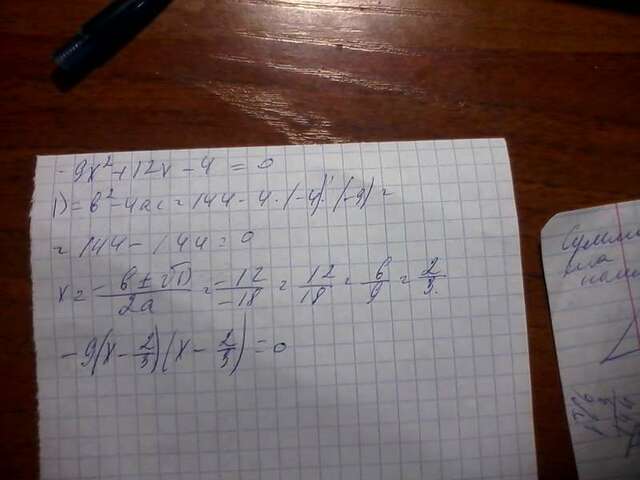 -9x²+12x-4=0
D=b²-4ac=144-4·(-4)·(-9)=
=144-144=0
x=(-b±√D)/2a=-12/-18=12/18=6/9=2/3.
-9(x-2/3)(x-2/3)=0